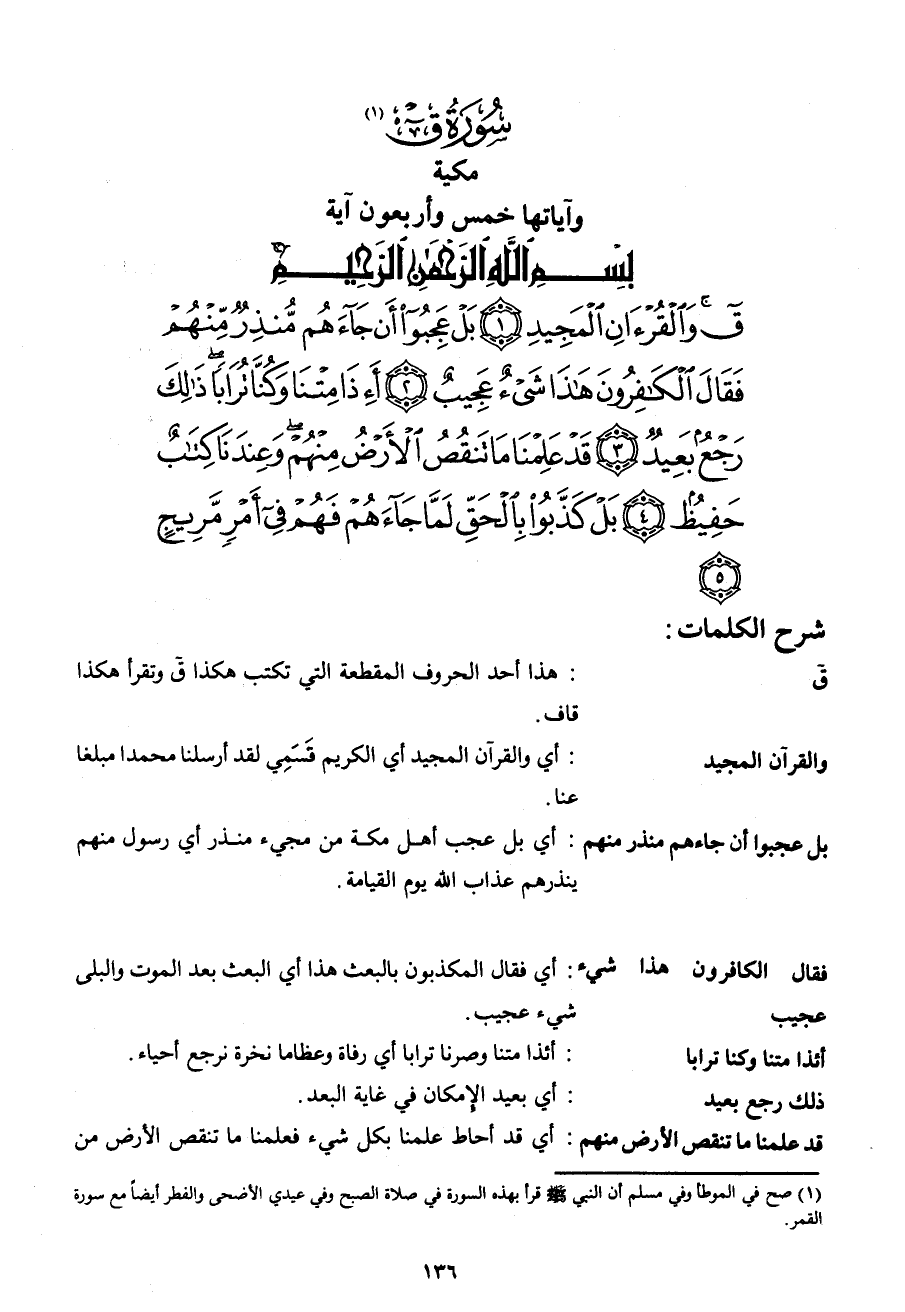 سُورَةُ قٓ (١)
مكية
وآياتها خمس وأربعون آية
بِسْمِ ٱللَّهِ ٱلرَّحْمَٰنِ ٱلرَّحِيمِ
قٓ ۚ وَٱلْقُرْءَانِ ٱلْمَجِيدِ ١ بَلْ عَجِبُوٓا۟ أَن جَآءَهُم مُّنذِرٌ مِّنْهُمْ
فَقَالَ ٱلْكَٰفِرُونَ هَٰذَا شَىْءٌ عَجِيبٌ ٢ أَءِذَا مِتْنَا وَكُنَّا تُرَابًا ۖ ذَٰلِكَ
رَجْعٌۢ بَعِيدٌ ٣ قَدْ عَلِمْنَا مَا تَنقُصُ ٱلْأَرْضُ مِنْهُمْ ۖ وَعِندَنَا كِتَٰبٌ
حَفِيظٌۢ ٤ بَلْ كَذَّبُوا۟ بِٱلْحَقِّ لَمَّا جَآءَهُمْ فَهُمْ فِىٓ أَمْرٍ مَّرِيجٍ
٥
شرح الكلمات :
قٓ : هذا أحد الحروف المقطعة التي تكتب هكذا قٓ وتقرأ هكذا
قاف.
والقرآن المجيد : أي والقرآن المجيد أي الكريم قَسَمِي لقد أرسلنا محمدا مبلغا
عنا.
بل عجبوا أن جاءهم منذر منهم : أي بل عجب أهل مكة من مجيء منذر أي رسول منهم
ينذرهم عذاب الله يوم القيامة.
فقال الكافرون هذا شيء : أي فقال المكذبون بالبعث هذا أي البعث بعد الموت والبلى
عجيب شيء عجيب.
أئذا متنا وكنا ترابا : أئذا متنا وصرنا ترابا أي رفاة وعظاما نخرة نرجع أحياء.
ذلك رجع بعيد : أي بعيد الإمكان في غاية البعد.
قد علمنا ما تنقص الأرض منهم : أي قد أحاط علمنا بكل شيء فعلمنا ما تنقص الأرض من
(١) صح في الموطأ وفي مسلم أن النبي ﷺ قرأ بهذه السورة في صلاة الصبح وفي عيدي الأضحى والفطر أيضاً مع سورة
القمر.
١٣٦